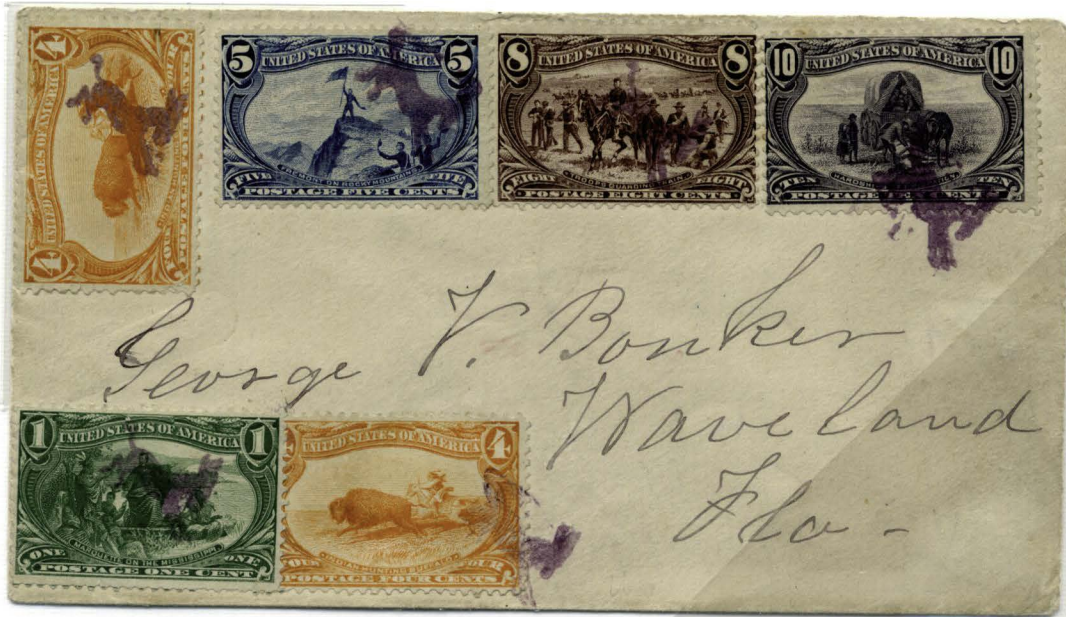 4 UNITED STATES OF AMERICA 4
5 UNITED STATES OF AMERICA 5
FIVE FREMONT ON ROCKY MOUNTAINS FIVE
POSTAGE FIVE CENTS
8 UNITED STATES OF AMERICA 8
EIGHT TROOPS GUARDING EIGHT
POSTAGE EIGHT CENTS
10 UNITED STATES OF AMERICA 10
TEN HARDSHIPS TEN
POSTAGE CENTS
George V. Bonker
Waveland
Fla -
1 UNITED STATES OF AMERICA 1
ONE MARQUETTE ON THE MISSISSIPPI. ONE
POSTAGE ONE CENT
UNITED STATES OF AMERICA 4
INDIAN HUNTING BUFFALO
POSTAGE FOUR CENTS